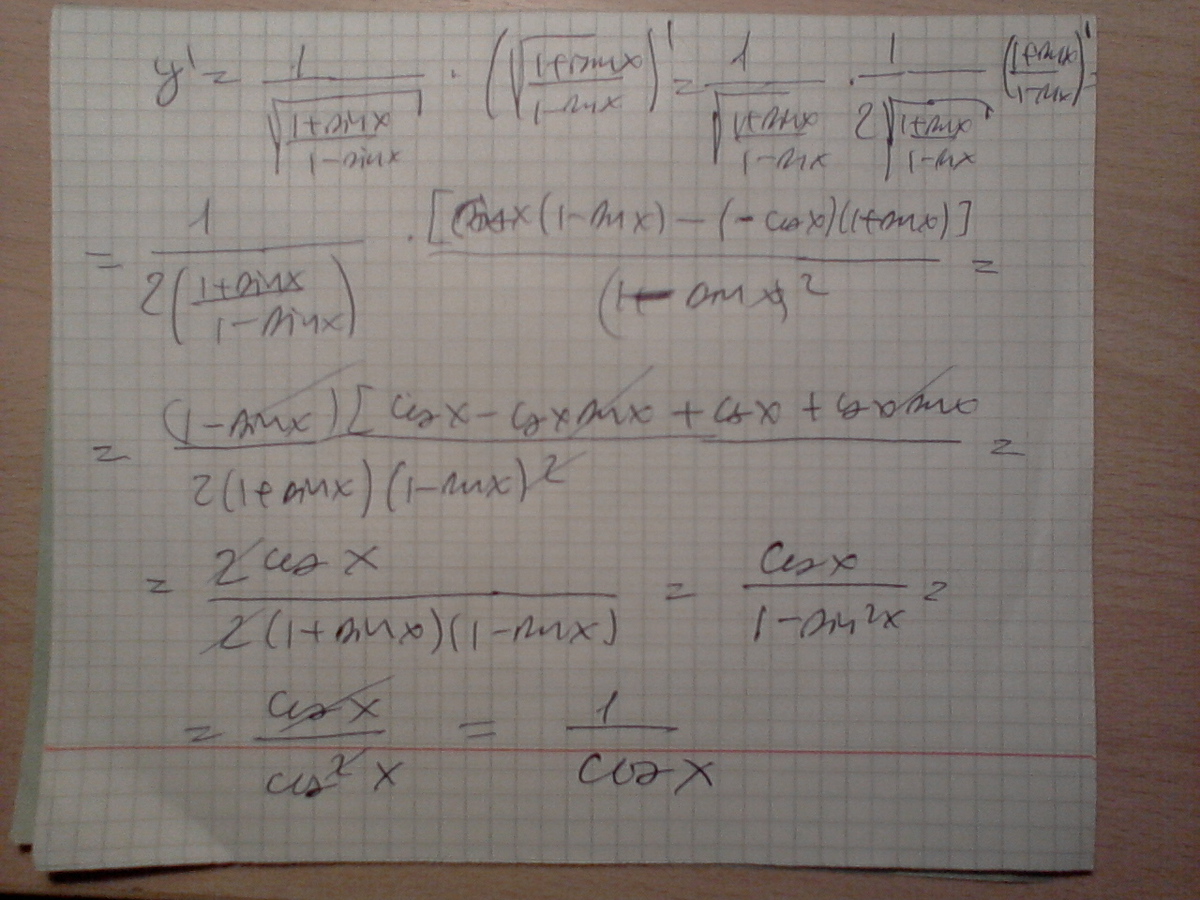 y' = 1/√((1+sinx)/(1-sinx)) · (√((1+sinx)/(1-sinx)))' = 1/√((1+sinx)/(1-sinx)) · 1/(2√((1+sinx)/(1-sinx))) ((1+sinx)/(1-sinx))' =
= 1/(2((1+sinx)/(1-sinx))) · [cosx(1-sinx) - (-cosx)(1+sinx)]/(1-sinx)² =
= (1-sinx)[cosx - cosx sinx + cosx + cosx sinx/(2(1+sinx)(1-sinx)²) =
= 2cosx/(2(1+sinx)(1-sinx)) = cosx/(1-sin²x) =
= cosx/cos²x = 1/cosx